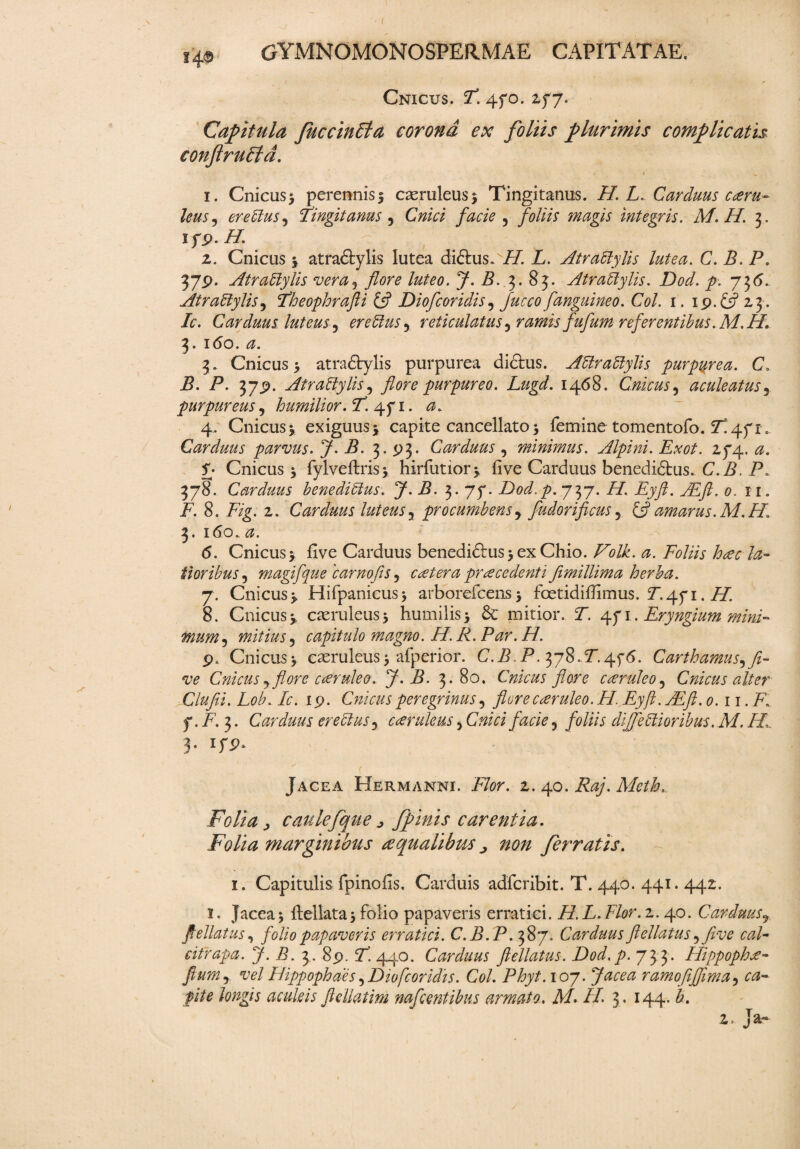 140 GYMNOMONOSPERMAE CAPITATAE.
Cnicus. T. 450. 257.
Capitula ſuccincta coronâ ex foliis plurimis complicatis
conſtructâ.
1. Cnicus; perennis; cæruleus; Tingitanus. H. L. Carduus cæru-
leus, erectus, Tingitanus, Cnici facie, foliis magis integris. M. H. 3.
159. H.
2. Cnicus; atractylis lutea dictus. H. L. Atractylis lutea. C. B. P.
379. Atractylis vera, flore luteo. J. B. 3. 83. Atractylis. Dod. p. 736.
Atractylis, Theophraſti & Dioſcoridis, ſucco ſanguineo. Col. 1. 19. & 23.
Ic. Carduus luteus, erectus, reticulatus, ramis ſuſum referentibus. M. H.
3. 160. a.
3. Cnicus; atractylis purpurea dictus. Actractylis purpurea. C.
B. P. 379. Atractylis, flore purpureo. Lugd. 1468. Cnicus, aculeatus,
purpureus, humilior. T. 451. a.
4. Cnicus; exiguus; capite cancellato; ſemine tomentoſo. T. 451.
Carduus parvus. J. B. 3. 93. Carduus, minimus. Alpini. Exot. 254. a.
5. Cnicus; ſylveſtris; hirſutior; ſive Carduus benedictus. C. B. P.
378. Carduus benedictus. J. B. 3. 75. Dod. p. 737. H. Eyſt. Æſt. o. 11.
F. 8. Fig. 2. Carduus luteus, procumbens, ſudorificus, & amarus. M. H.
3. 160. a.
6. Cnicus; ſive Carduus benedictus; ex Chio. Volk. a. Foliis hæc la-
tioribus, magiſque carnoſis, cætera præcedenti ſimillima herba.
7. Cnicus; Hiſpanicus; arboreſcens; fœtidiſſimus. T. 451. H.
8. Cnicus; cæruleus; humilis; & mitior. T. 451. Eryngium mini-
mum, mitius, capitulo magno. H. R. Par. H.
9. Cnicus; cæruleus; aſperior. C. B. P. 378. T. 456. Carthamus, ſi-
ve Cnicus, flore cæruleo. J. B. 3. 80. Cnicus flore cæruleo, Cnicus alter
Cluſii. Lob. Ic. 19. Cnicus peregrinus, flore cæruleo. H. Eyſt. Æſt. o. 11. F.
5. F. 3. Carduus erectus, cæruleus, Cnici facie, foliis diſſectioribus. M. H.
3. 159.
Jacea Hermanni. Flor. 2. 40. Raj. Meth.
Folia, cauleſque, ſpinis carentia.
Folia marginibus æqualibus, non ſerratis.
1. Capitulis ſpinoſis. Carduis adſcribit. T. 440. 441. 442.
1. Jacea; ſtellata; folio papaveris erratici. H. L. Flor. 2. 40. Carduus,
ſtellatus, folio papaveris erratici. C. B. P. 387. Carduus ſtellatus, ſive cal-
citrapa. J. B. 3. 89. T. 440. Carduus ſtellatus. Dod. p. 733. Hippophæ-
ſtum, vel Hippophaës, Dioſcoridis. Col. Phyt. 107. Jacea ramoſiſſima, ca-
pite longis aculeis ſtellatim naſcentibus armato. M. H. 3. 144. b.
2. Ja-